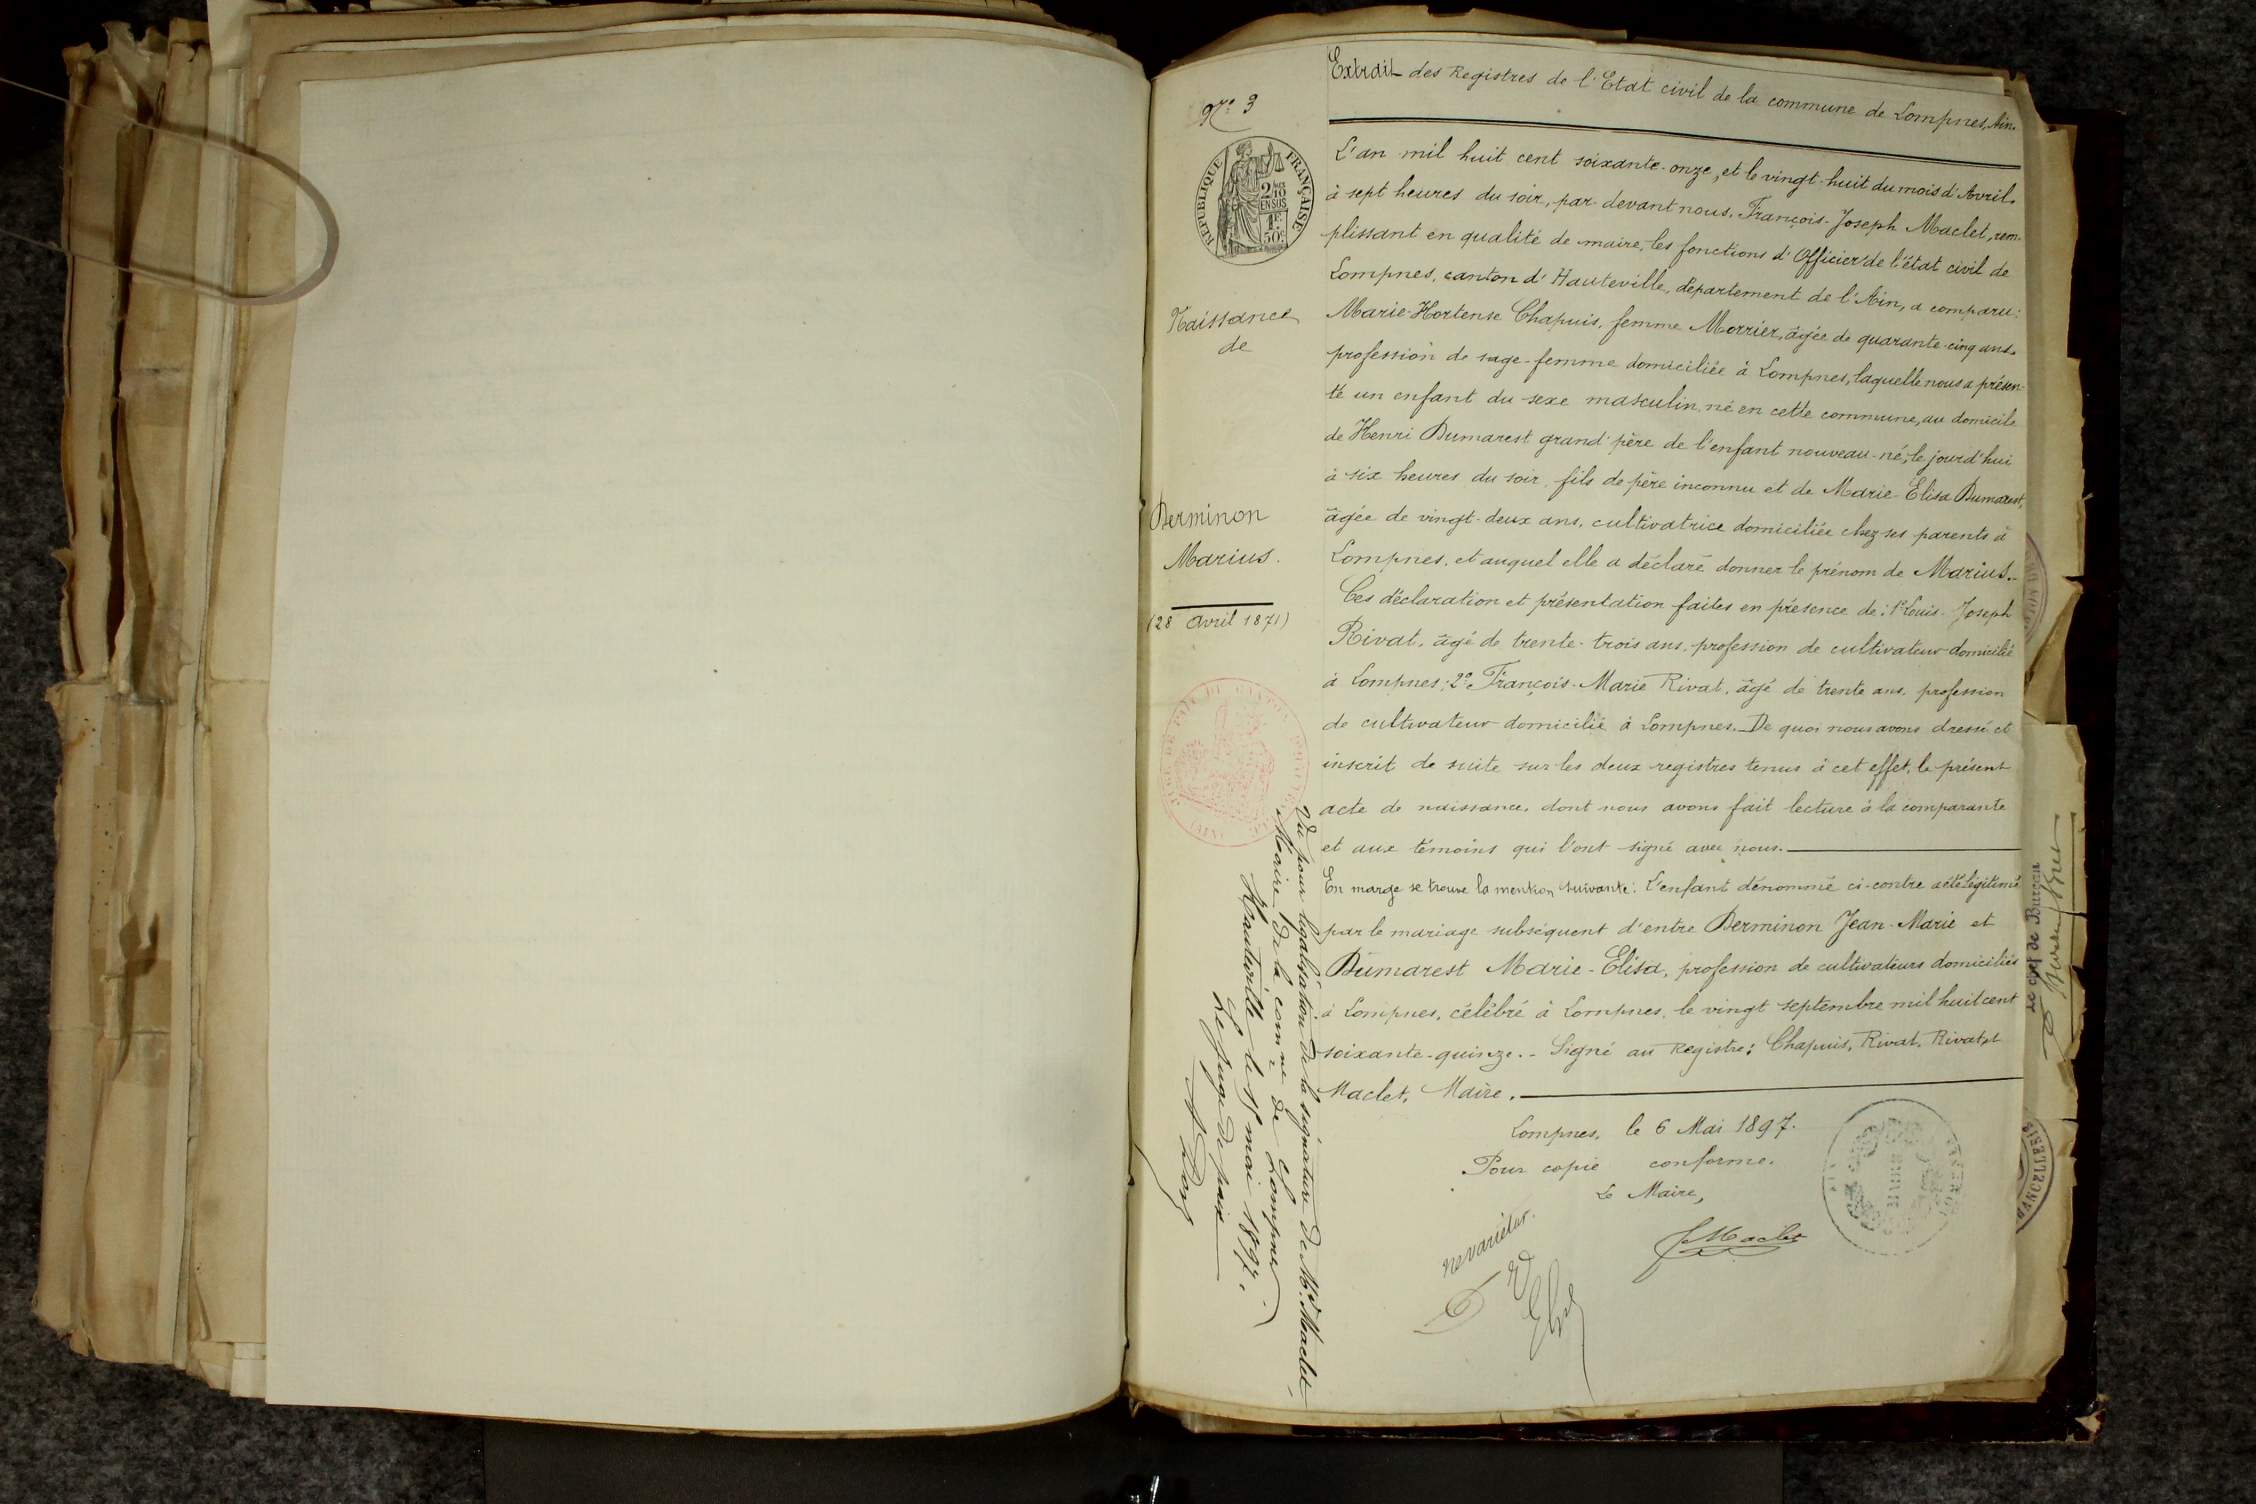 Extrait des Registres de l'Etat civil de la commune de Lompnes, Ain.
N.º 3
REPUBLIQUE FRANÇAISE
2/10
EN SUS
1F.
50c
Naissance
de
Derminon
Marius.
(28 Avril 1871)
L'an mil huit cent soixante-onze, et le vingt-huit du mois d'Avril.
à sept heures du soir, par-devant nous, François-Joseph Maclet, rem-
plissant en qualité de maire, les fonctions d'Officier de l'état civil de
Lompnes, canton d'Hauteville, département de l'Ain, a comparu:
Marie-Hortense Chapuis, femme Morrier, âgée de quarante-cinq ans.
profession de sage-femme domiciliée à Lompnes, laquelle nous a présen-
té un enfant du sexe masculin, né en cette commune, au domicile
de Henri Dumarest grand'père de l'enfant nouveau-né, le jourd'hui
à six heures du soir, fils de père inconnu et de Marie-Elisa Dumarest,
âgée de vingt-deux ans, cultivatrice domiciliée chez ses parents à
Lompnes, et auquel elle a déclaré donner le prénom de Marius.-
Ces déclaration et présentation faites en présence de: 1º Louis-Joseph
Rivat, âgé de trente-trois ans, profession de cultivateur domicilié
à Lompnes; 2º François-Marie Rivat, âgé de trente ans, profession
de cultivateur domicilié à Lompnes. De quoi nous avons dressé et
inscrit de suite sur les deux registres tenus à cet effet, le présent
acte de naissance, dont nous avons fait lecture à la comparante
et aux témoins qui l'ont signé avec nous.
En marge se trouve la mention suivante: L'enfant dénommé ci-contre a été légitimé
par le mariage subséquent d'entre Derminon Jean-Marie et
Dumarest Marie-Elisa, profession de cultivateurs domiciliés
à Lompnes, célébré à Lompnes, le vingt septembre mil huit cent
soixante-quinze.- Signé au Registre: Chapuis, Rivat, Rivat, et
Maclet, Maire.
Lompnes, le 6 Mai 1897.
Pour copie conforme.
Le Maire,
Maclet
MAIRIE
ne varietur.
Vu pour légalisation de la signature de Mr. Maclet,
Maire de la comne de Lompnes.
Hauteville le 15 mai 1897.
Le Juge de paix
Le chef de Bureau
CHANCELLERIE